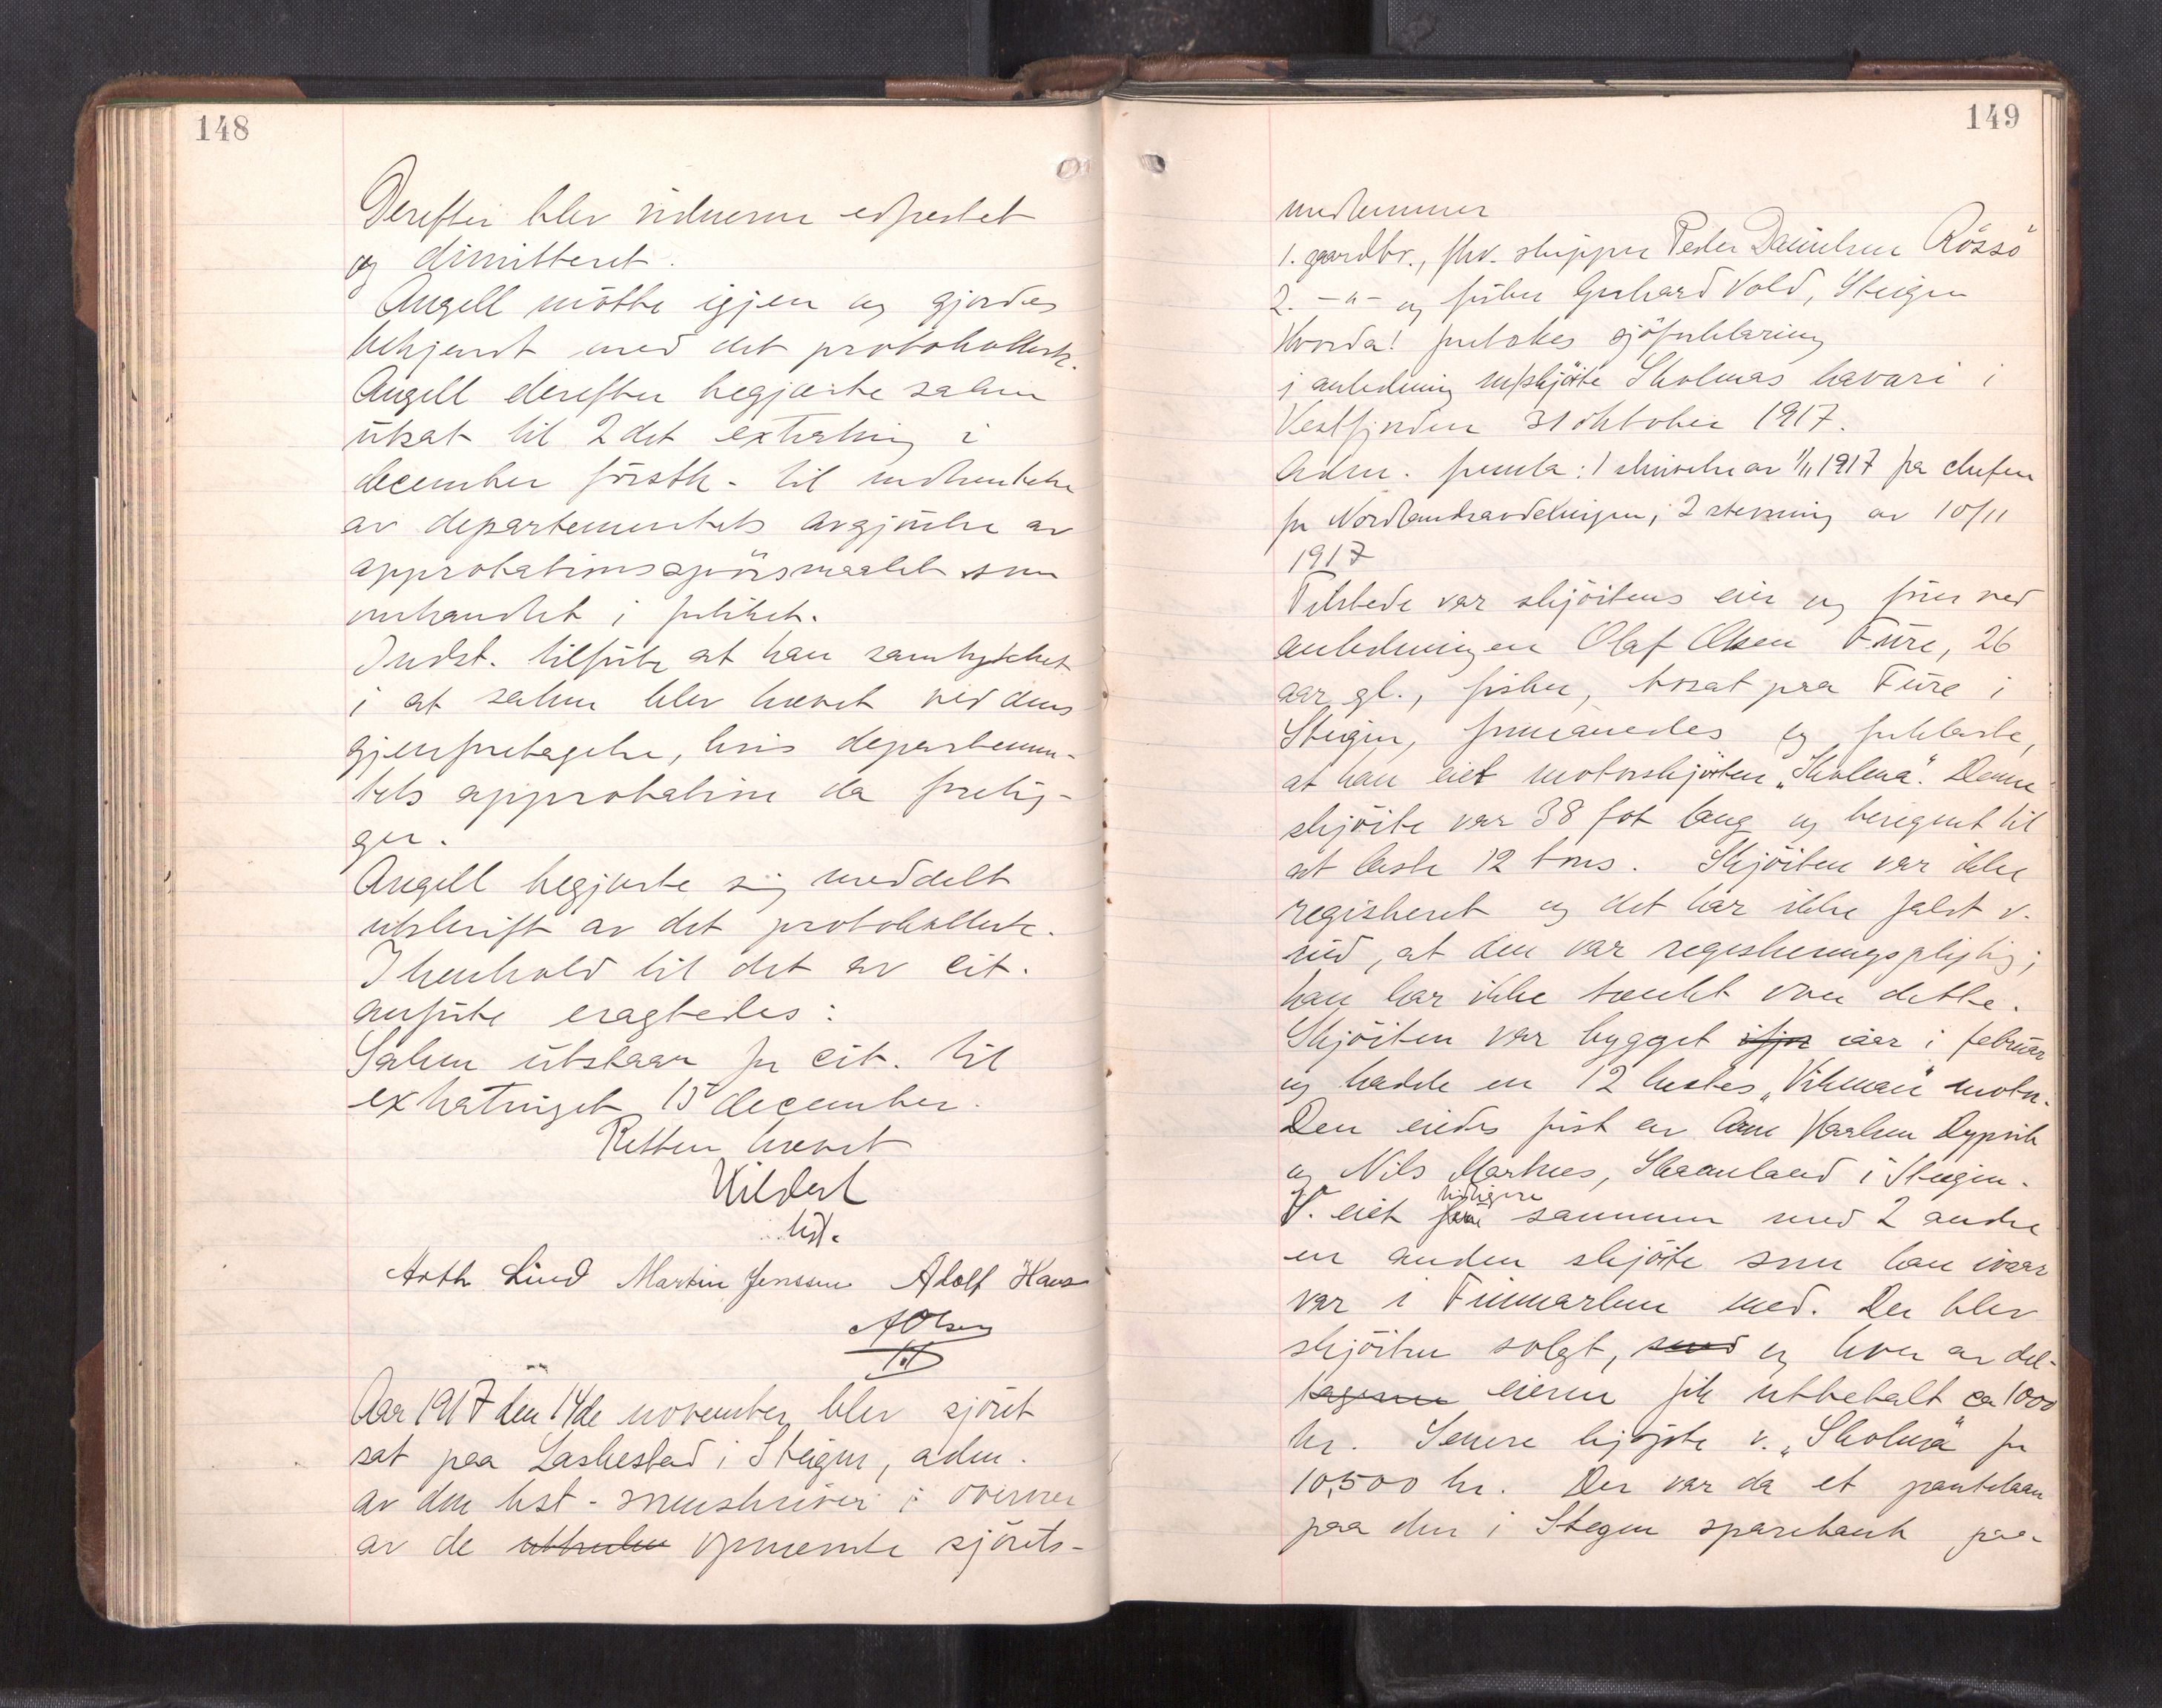 148
Derefter blev vidnerne edfæstet
og dimitteret.
Angell mötte igjen og gjordes
bekjendt med det protokollerte.
Angell derefter begjærte saken
utsat til 2det extrating i
december förstk. til indhentelse
av departementets avgjörelse av
approbationsspörsmaalet som
omhandlet i forliket.
Indst. tilförte at han samtykket
i at saken blev hævet ved dens
gjenforetagelse, hvis departemen-
tets approbation da forelig-
ger.
Angell begjærte sig meddelt
utskrift av det protokollerte.
I henhold til det av cit.
anförte eragtedes:
Saken utstaar for cit. til
extratinget 15 december.
Retten hævet
Hilderl
kst.
Arth Lind Martin Jenssen Adolf Hans
AOlsen
Aar 1917 den 14de november blev sjöret
sat paa Laskestad i Steigen, adm.
av den kst. sorenskriver i overvær
av de opnævnte sjörets-
149
medlemmer
1. gaardbr., fhv. skipper Peder Danielsen Rössö
2. -"- og fisker Gerhard Vold, Steigen
Hvorda! foretokes sjöforklaring
i anledning m/skjöite Skolmas havari i
Vestfjorden 31 oktober 1917.
Adm. fremla: 1 skrivelse av 1/11 1917 fra chefen
for Nordlandsavdelingen; 2 stevning av 10/11
1917
Tilstede var skjöitens eier og förer ved
anledningen Olaf Olsen Füre, 26
aar gl., fisker, bosat paa Füre i
Steigen, formanedes og forklarte,
at han eiet motorskjöiten "Skolma". Denne
skjöite var 38 fot lang og beregnet til
at laste 12 tons. Skjöiten var ikke
registreret og det har ikke falt v.
ind, at den var registreringspligtig;
han har ikke tænkt over dette.
Skjöiten var bygget ifjor iaar i februar
og hadde en 12 hestes "Vikman" motor.
Den eiedes först av Arne Karlsen Dypvik
og Nils Markus, Skaanland i Steigen.
V. eiet tidligere sammen med 2 andre
en anden skjöite som han ivaar
var i Finmarken med. Der blev
skjöiten solgt, med og hver av del-
tagerne eierne fik utbetalt ca 1000
kr. Senere kjöpte v. "Skolma" for
10,500 kr. Der var da et pantelaan
paa den i Stegen sparebank paa